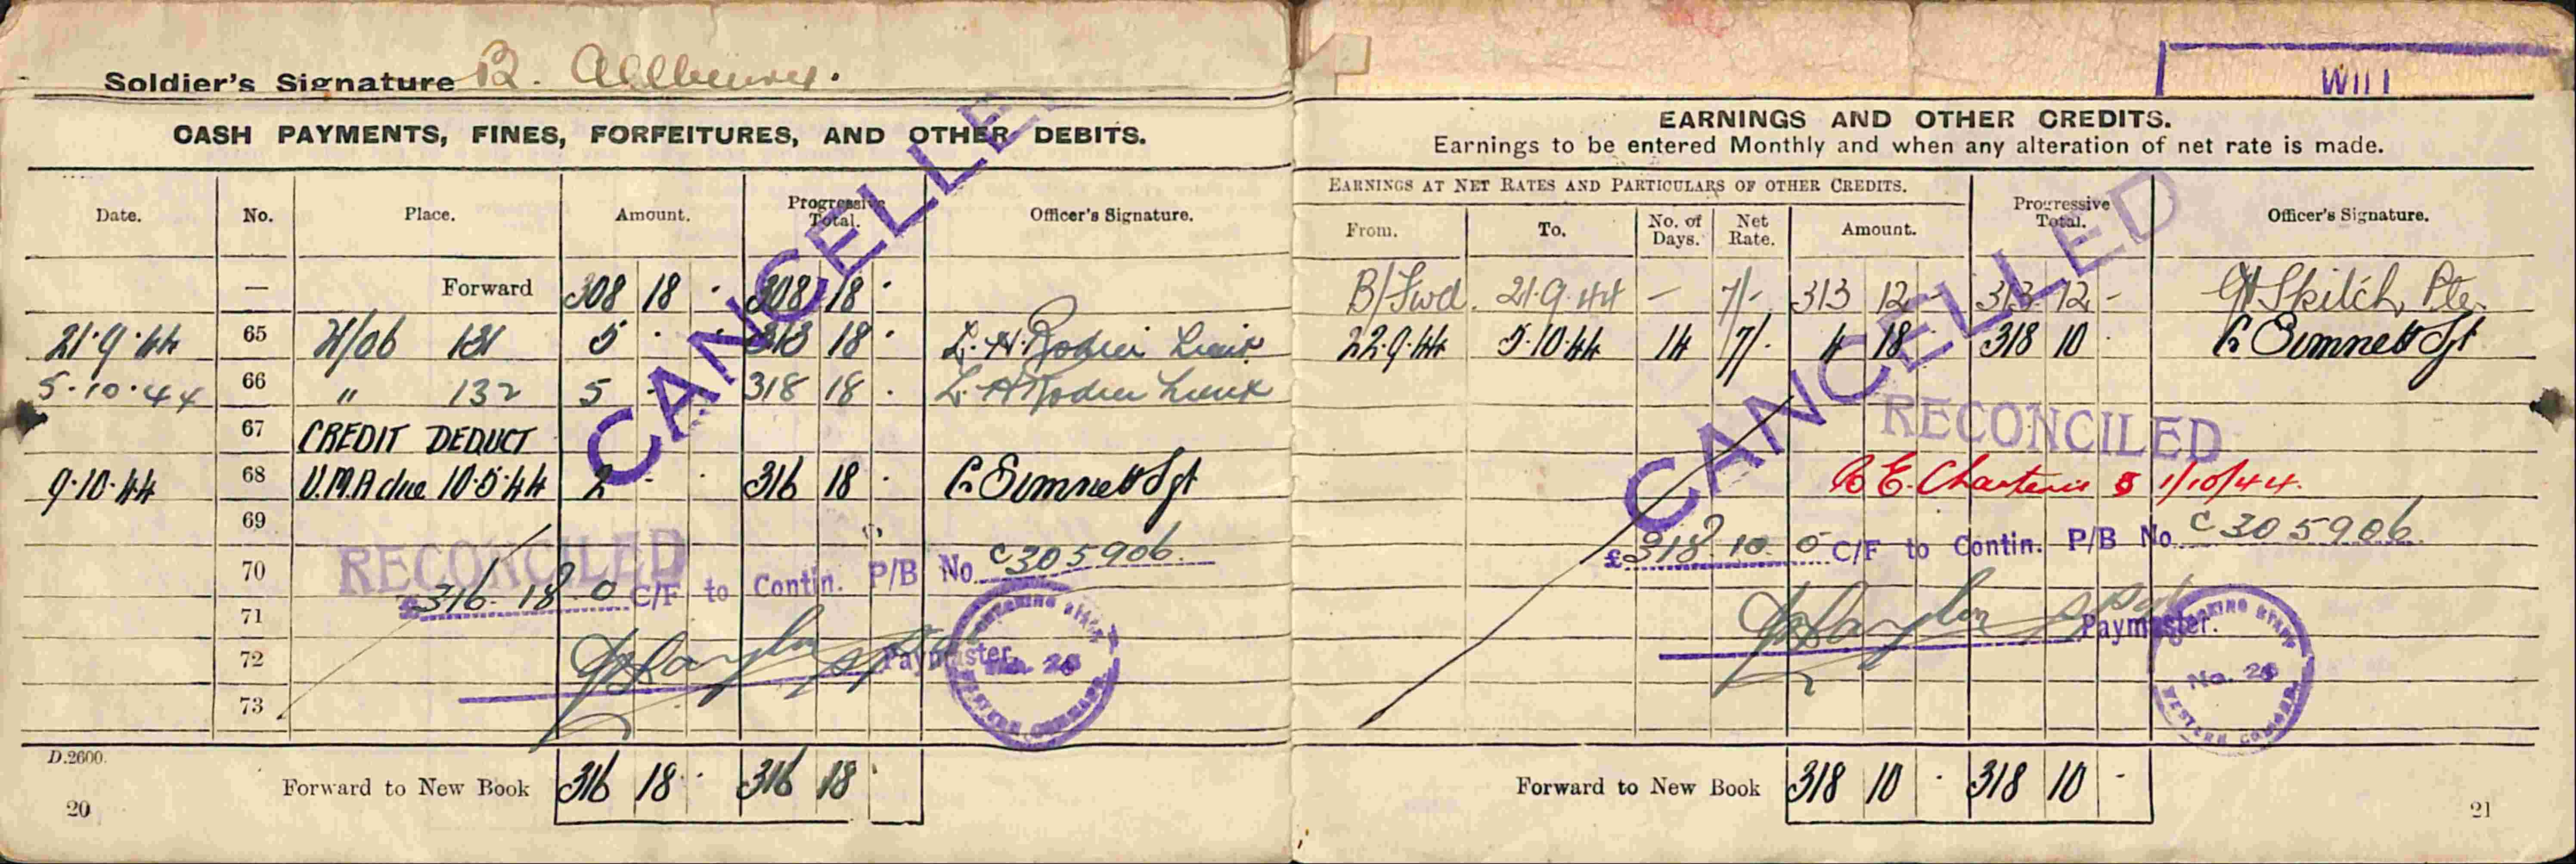 Soldier's Signature B.
CASH PAYMENTS, FINES, FORFEITURES, AND OTHER DEBITS.
Date. No. Place. Amount. Progressive Total. Officer's Signature.
— Forward 308 18 · 308 18 ·
21·9·44 65 131 5 · · 313 18 · Lieut
5·10·44 66 " 132 5 - 318 18 · Lieut
67 CREDIT DEDUCT
9·10·44 68 V.M.A due 10·5·44 2 - · 316 18 · Sumnett Sgt
69
70
71
72
73
CANCELLED
RECONCILED
£316. 18. 0 C/F to Contin. P/B No. C305906.
Paymaster.
CHECKING STAFF
No. 28
WESTERN COMMAND
D.2600.
Forward to New Book 316 18 · 316 18 ·
20
WILL
EARNINGS AND OTHER CREDITS.
Earnings to be entered Monthly and when any alteration of net rate is made.
EARNINGS AT NET RATES AND PARTICULARS OF OTHER CREDITS. Progressive Total. Officer's Signature.
From. To. No. of Days. Net Rate. Amount.
B/Fwd. 21·9·44 — 7/- 313 12 - 313 12 - Skitch Pte.
22·9·44 5·10·44 14 7/- 4 18 · 318 10 · Sumnett Sgt
CANCELLED
RECONCILED
1/10/44.
£318. 10. 0 C/F to Contin. P/B No. C305906.
Paymaster.
CHECKING STAFF
No. 28
WESTERN COMMAND
Forward to New Book 318 10 · 318 10 -
21